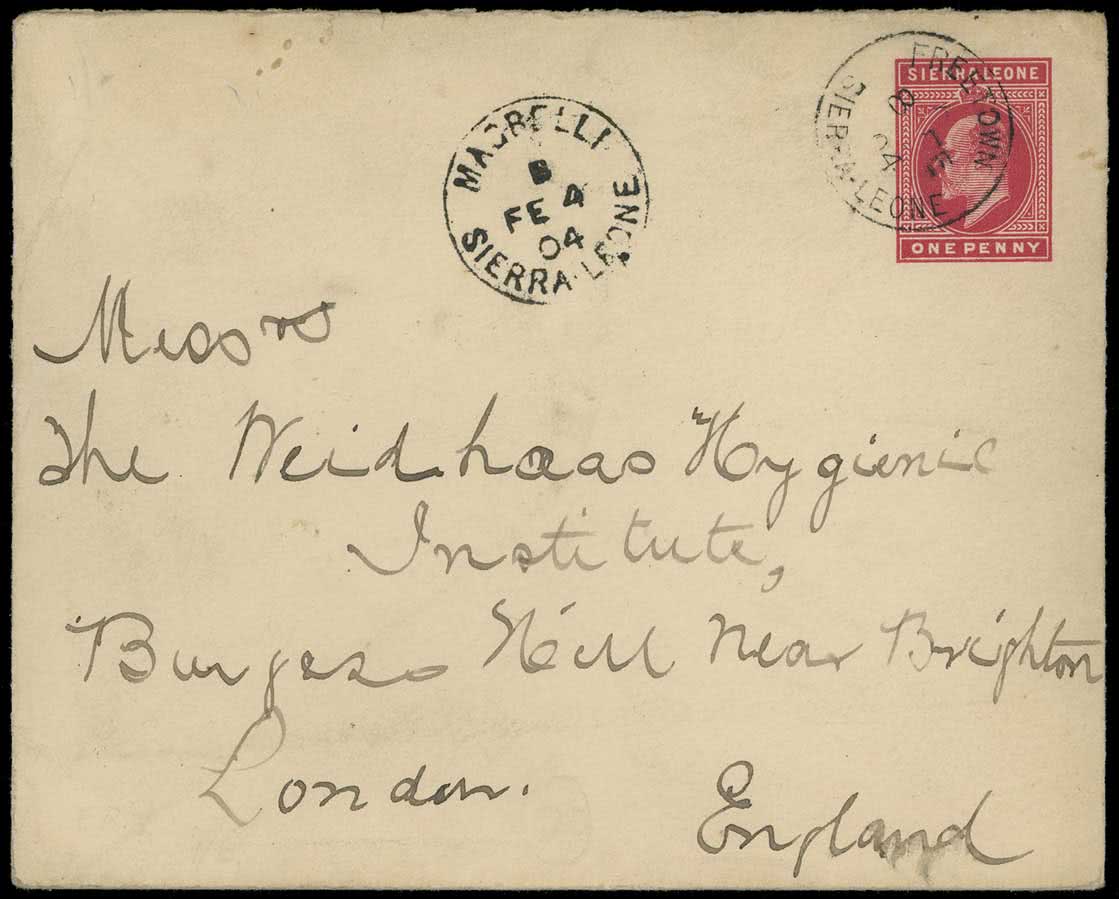 FREETOWN
SIERRA-LEONE
04
SIERRA LEONE
ONE PENNY
B
FE 4
04
SIERRA-LEONE
Messrs
The Weidhaas Hygienic
Institute,
Burgess Hill near Brighton
London.
England